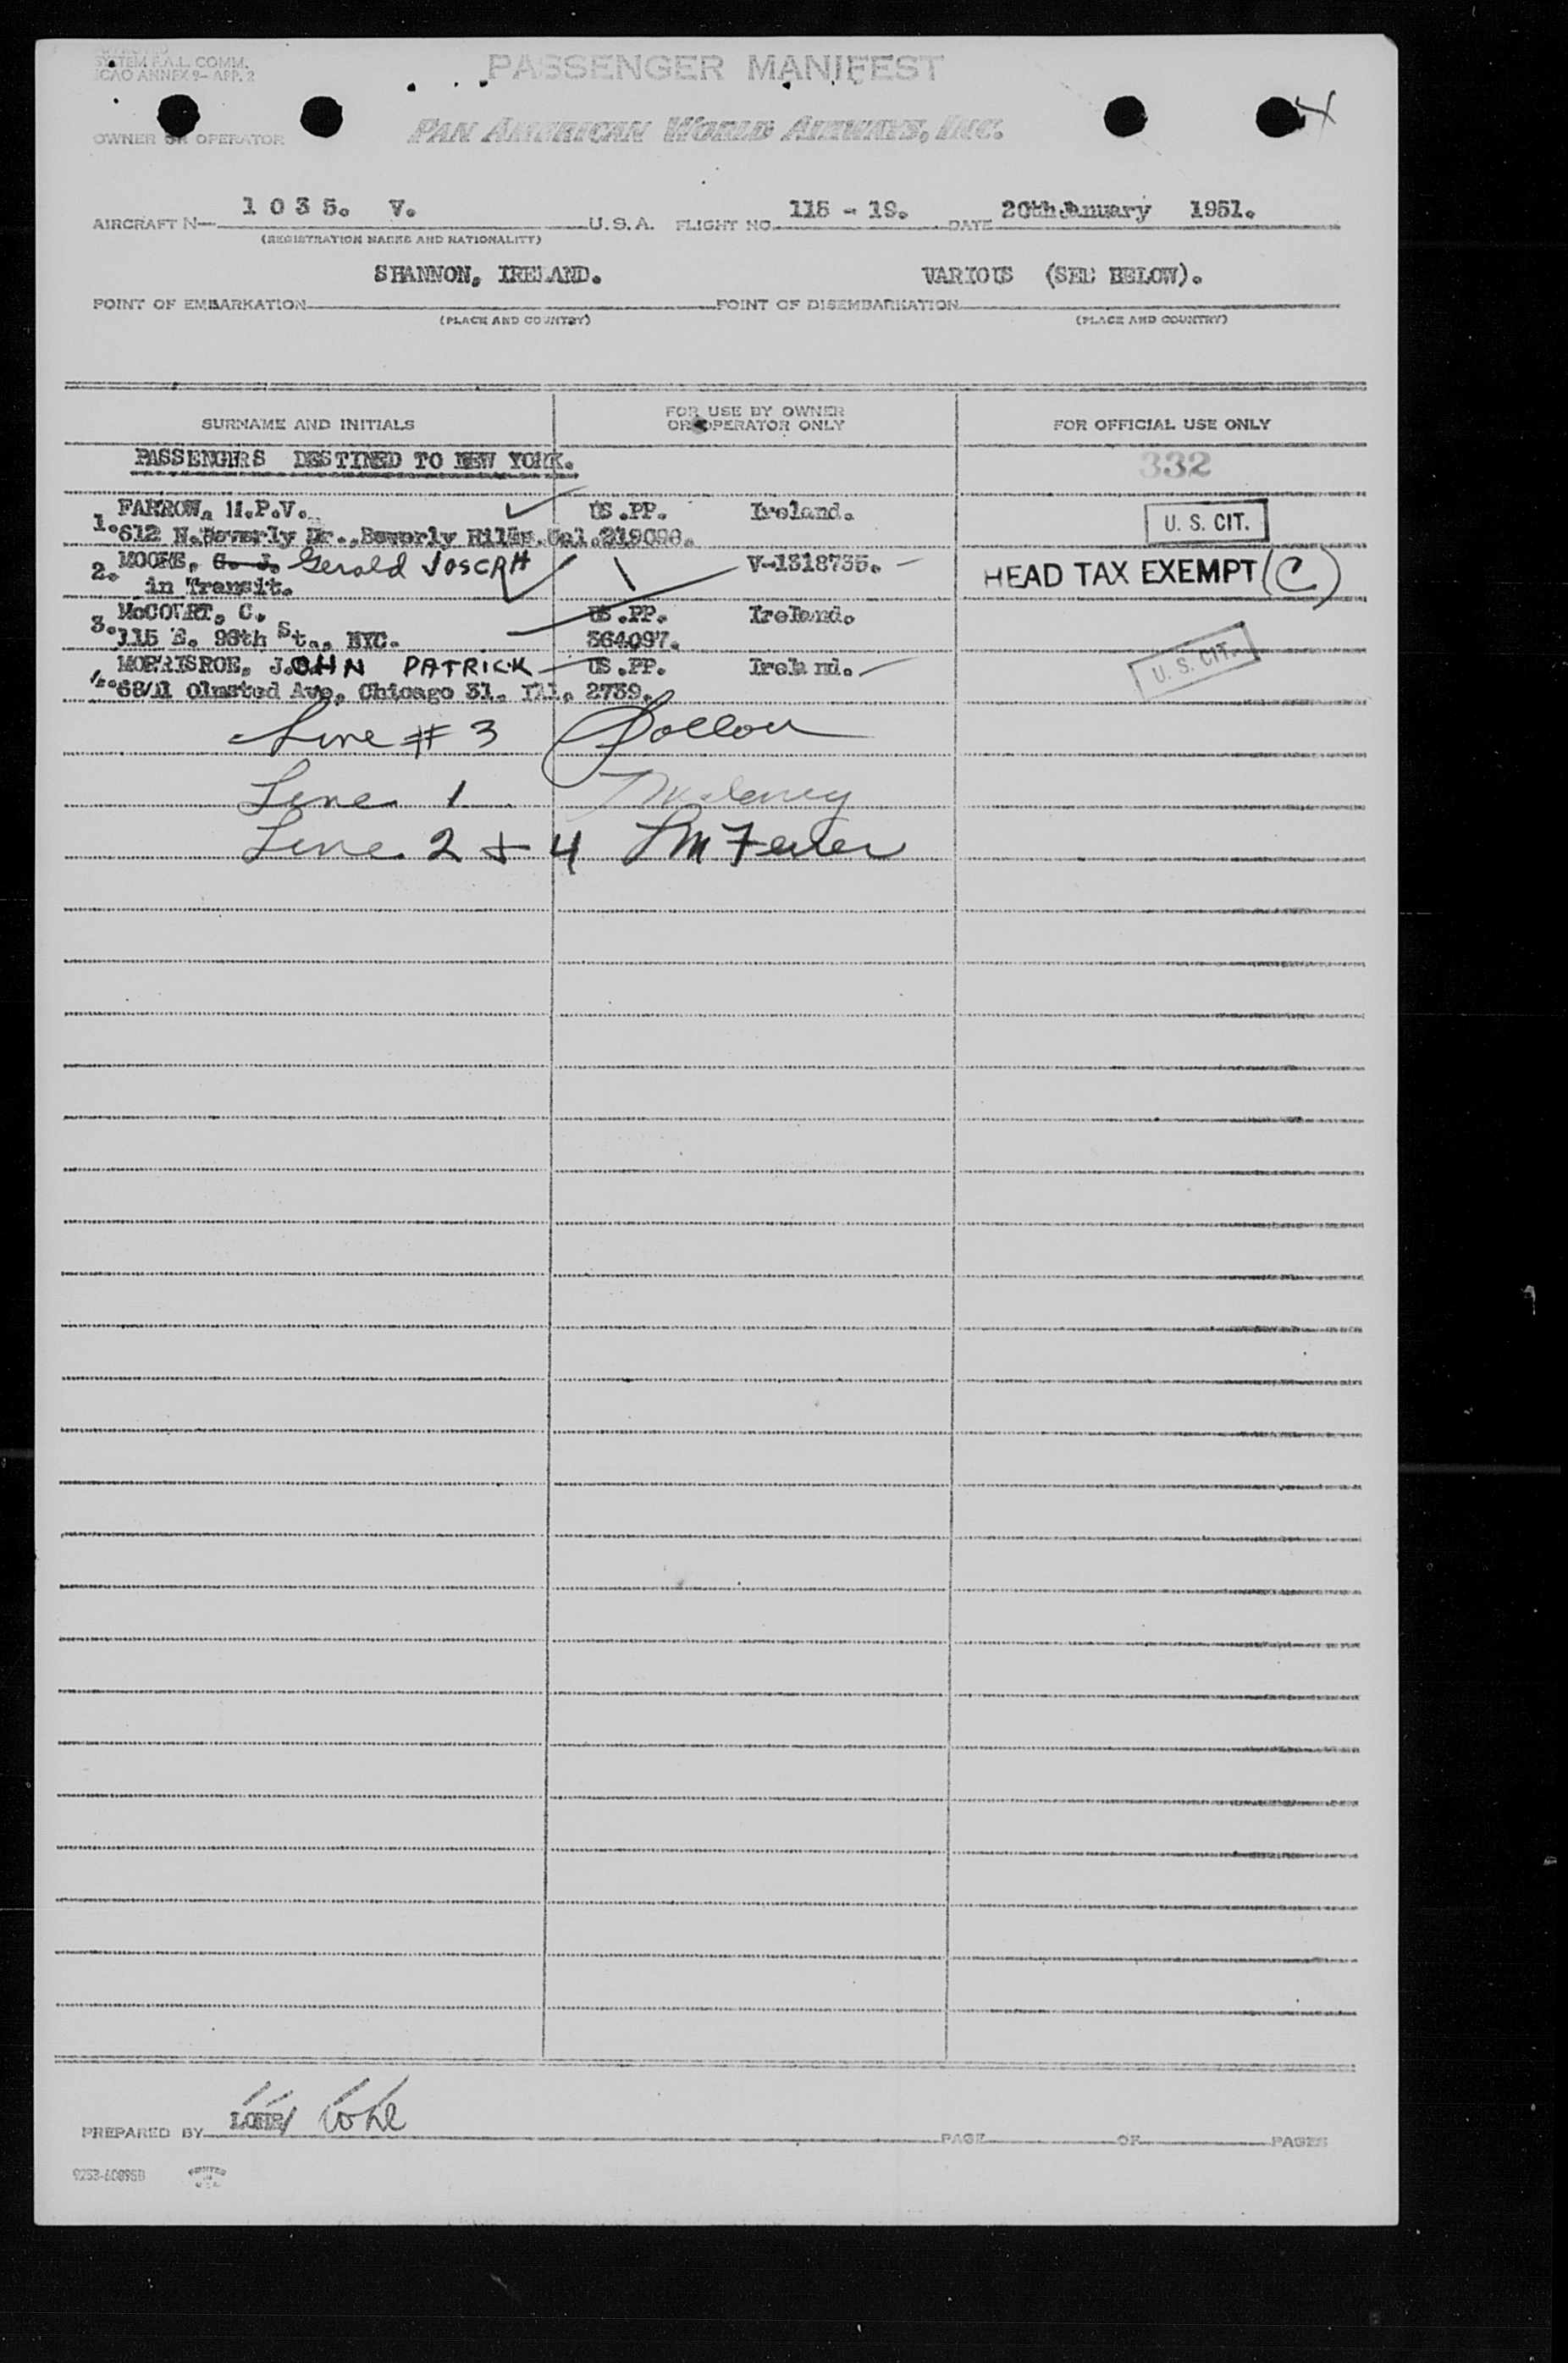 SYSTEM F.A.L. COMM.
ICAO ANNEX 9- APP. 2
PASSENGER MANIFEST
OWNER OR OPERATOR
PAN AMERICAN WORLD AIRWAYS, INC.
AIRCRAFT N— 1 0 3 5. V. U.S.A. FLIGHT NO. 115 - 19. DATE 20th January 1951.
(REGISTRATION MARKS AND NATIONALITY)
SHANNON, IRELAND. VARIOUS (SEE BELOW).
POINT OF EMBARKATION POINT OF DISEMBARKATION
(PLACE AND COUNTRY) (PLACE AND COUNTRY)
SURNAME AND INITIALS FOR USE BY OWNER OR OPERATOR ONLY FOR OFFICIAL USE ONLY
PASSENGERS DESTINED TO NEW YORK. 332
1. FARROW, M.P.V. US.PP. Ireland. U. S. CIT.
612 N.Beverly Dr., Beverly Hills. Cal. 219098.
2. MOORE, G. J. Gerald JOSEPH V-1318735. HEAD TAX EXEMPT (C)
in Transit.
3. McCOURT, C. US.PP. Ireland.
115 E. 96th St., NYC. 564097.
MORRISROE, J.OHN PATRICK US.PP. Ireland. U. S. CIT.
Olmsted Ave, Chicago 31. Ill. 2739.
Line # 3
Line 1
Line 2 + 4
PREPARED BY PAGE OF PAGES
9253-60895B PRINTED IN U.S.A.